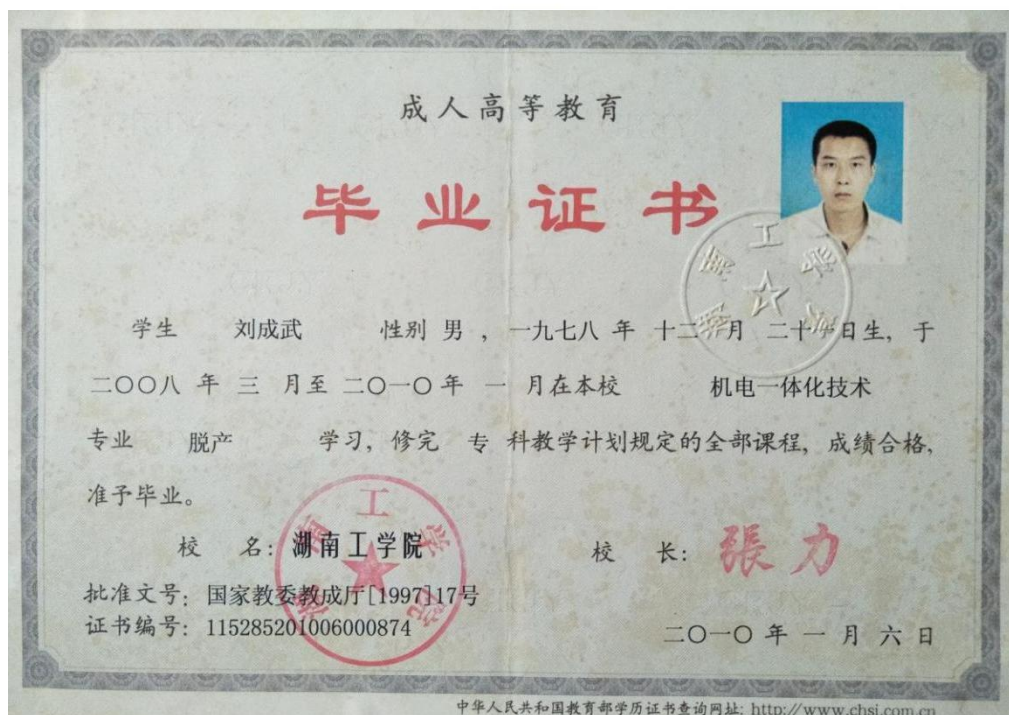 成人高等教育
毕业证书
学生 刘成武 性别 男 , 一九七八 年 十二 月 二十一日生, 于
二〇〇八 年 三 月至 二〇一〇 年 一 月在本校 机电一体化技术
专业 脱产 学习, 修完 专 科教学计划规定的全部课程, 成绩合格,
准予毕业。
校 名: 湖南工学院
校 长: 張力
批准文号: 国家教委教成厅[1997]17号
证书编号: 115285201006000874
二〇一〇 年 一 月 六 日
湖南工学院
湖南工学院
中华人民共和国教育部学历证书查询网址: http://www.chsi.com.cn